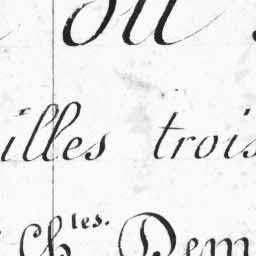 ou
illes trois
Ch.les. Dem